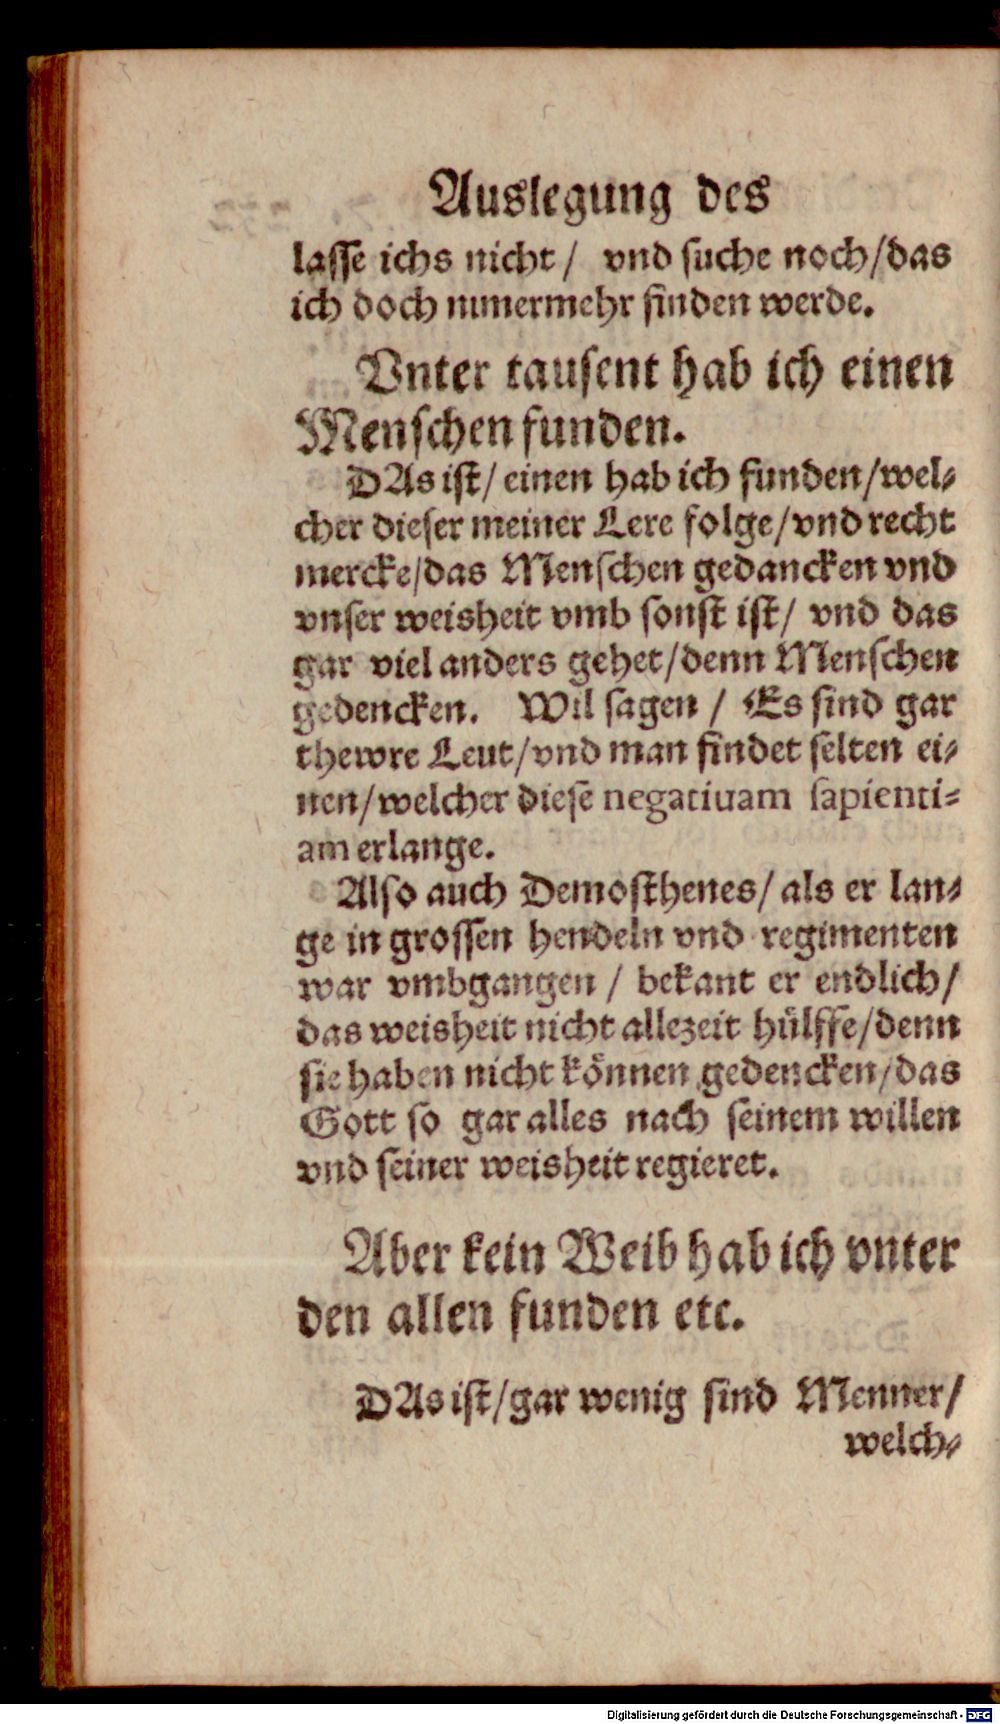 Auslegung des
lasse ichs nicht / vnd suche noch/das
ich doch nimermehr finden werde.
Vnter tausent hab ich einen
Menschen funden.
DAs ist/ einen hab ich funden/wel⸗
cher dieser meiner Lere folge/vnd recht
mercke/das Menschen gedancken vnd
vnser weisheit vmb sonst ist/ vnd das
gar viel anders gehet/denn Menschen
gedencken. Wil sagen / Es sind gar
thewre Leut/vnd man findet selten ei⸗
nen/welcher diese negatiuam sapienti⸗
am erlange.
Also auch Demosthenes/ als er lan⸗
ge in grossen hendeln vnd regimenten
war vmbgangen / bekant er endlich/
das weisheit nicht allezeit hülffe/denn
sie haben nicht können gedencken/das
Gott so gar alles nach seinem willen
vnd seiner weisheit regieret.
Aber kein Weib hab ich vnter
den allen funden etc.
DAs ist/gar wenig sind Menner/
welch⸗
Digitalisierung gefördert durch die Deutsche Forschungsgemeinschaft - DFG